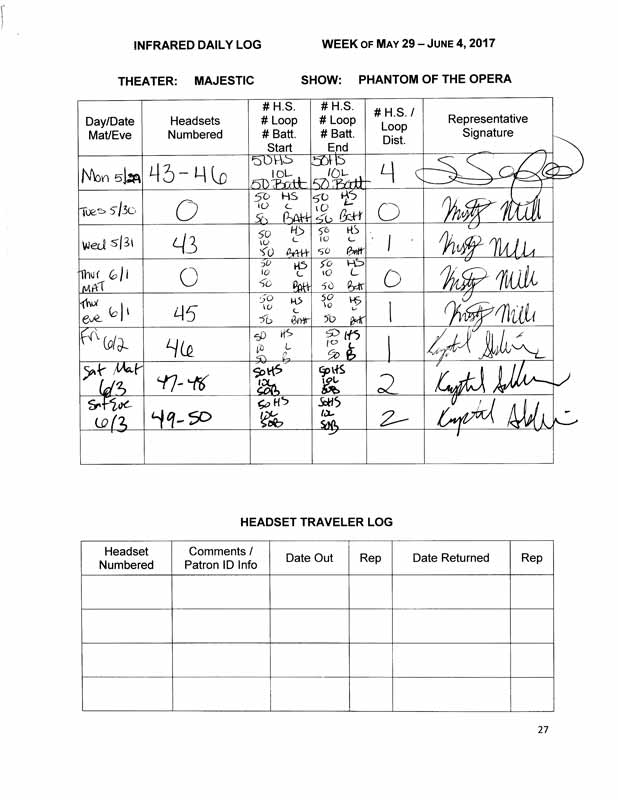 INFRARED DAILY LOG WEEK OF MAY 29 – JUNE 4, 2017
THEATER: MAJESTIC SHOW: PHANTOM OF THE OPERA
Day/Date Mat/Eve Headsets Numbered # H.S. # Loop # Batt. Start # H.S. # Loop # Batt. End # H.S. / Loop Dist. Representative Signature
Mon 5/29 43-46 50HS 10L 50 Batt 50HS 10L 50 Batt 4
Tues 5/30 0 50 HS 10 L 50 BATT 50 HS 10 L 50 Batt 0 Kristy Mill
Wed 5/31 43 50 HS 10 L 50 BATT 50 HS 10 L 50 Batt 1 Kristy Mills
Thur 6/1 MAT 0 50 HS 10 L 50 Batt 50 HS 10 L 50 Batt 0 Kristy Mills
Thur eve 6/1 45 50 HS 10 L 50 Batt 50 HS 10 L 50 Bat 1 Kristy Mills
Fri 6/2 46 50 HS 10 L 50 B 50 HS 10 L 50 B 1 Krystal
Sat Mat 6/3 47-48 50HS 10L 50B 50HS 10L 50B 2 Krystal
Sat Eve 6/3 49-50 50HS 10L 50B 50HS 10L 50B 2 Krystal
HEADSET TRAVELER LOG
Headset Numbered Comments / Patron ID Info Date Out Rep Date Returned Rep
27